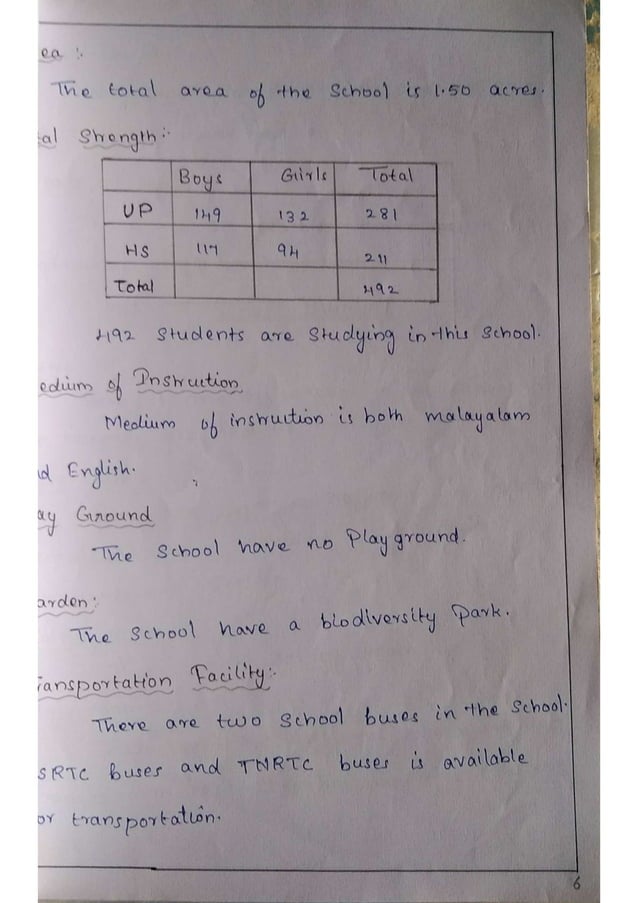 ea :-
The total area of the School is 1.50 acres.
al Strength :-
Boys Girls Total
UP 149 132 281
HS 117 94 211
Total 492
492 Students are Studying in this School.
edium of Instruction
Medium of instruction is both malayalam
d English.
ay Ground
The School have no Play ground.
arden :
The School have a biodiversity Park.
ansportation Facility :-
There are two School buses in the School.
SRTC buses and TNRTC buses is available
or transportation.
6